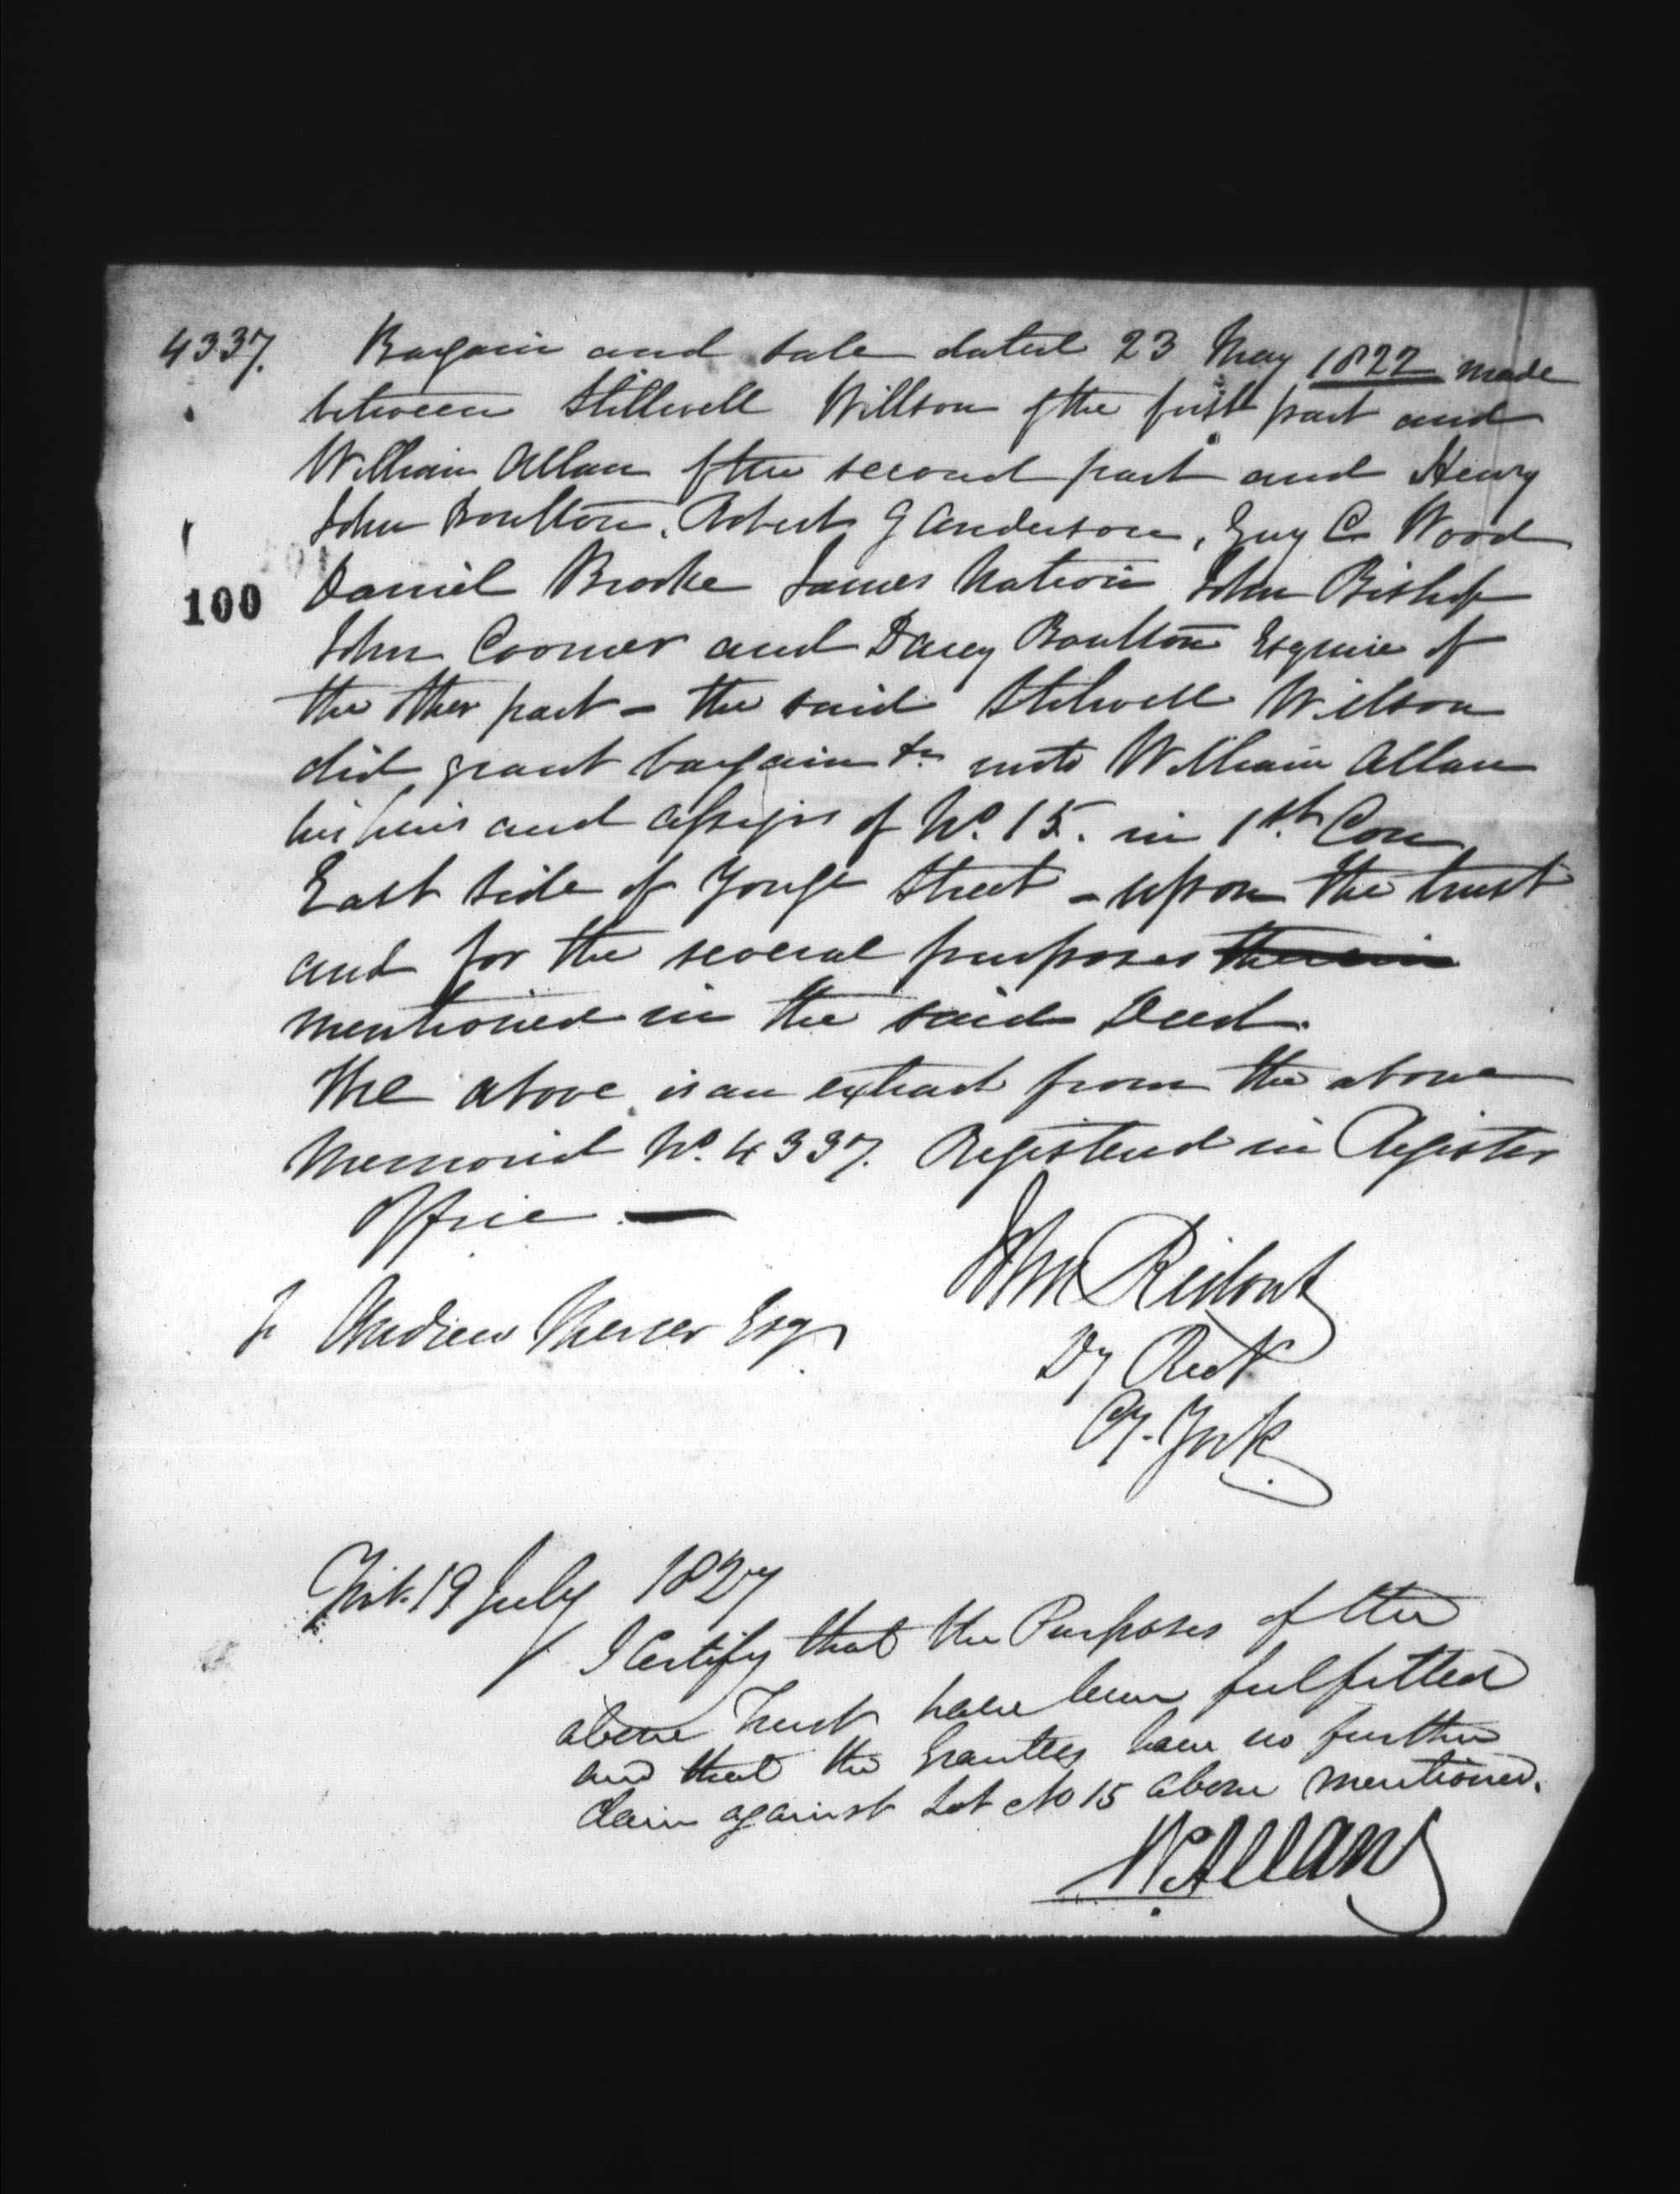 4337. Bargain and sale dated 23 May 1822 made
between Stillwell Willson of the first part and
William Allan of the second part and Henry
John Boulton, Robert G Anderson, Guy C Wood
100 Daniel Brooke James Nation John Bishop
John Coomer and Darcy Boulton Esquire of
the other part - the said Stilwell Willson
did grant bargain &c unto William Allan
his heirs and assigns of No. 15. in 1st. Con
East side of Yonge Street - upon the trust
and for the several purposes therein
mentioned in the said Deed.
The above is an extract from the above
Memorial No. 4337. Registered in Register
Office -
John Ridout
To Andrew Mercer Esqr
Dy Regt
Cy. York
York 19 July 1827
I Certify that the Purposes of the
above Trust have been fulfilled
and that the Grantees have no further
claim against Lot No 15 above mentioned.
W Allan